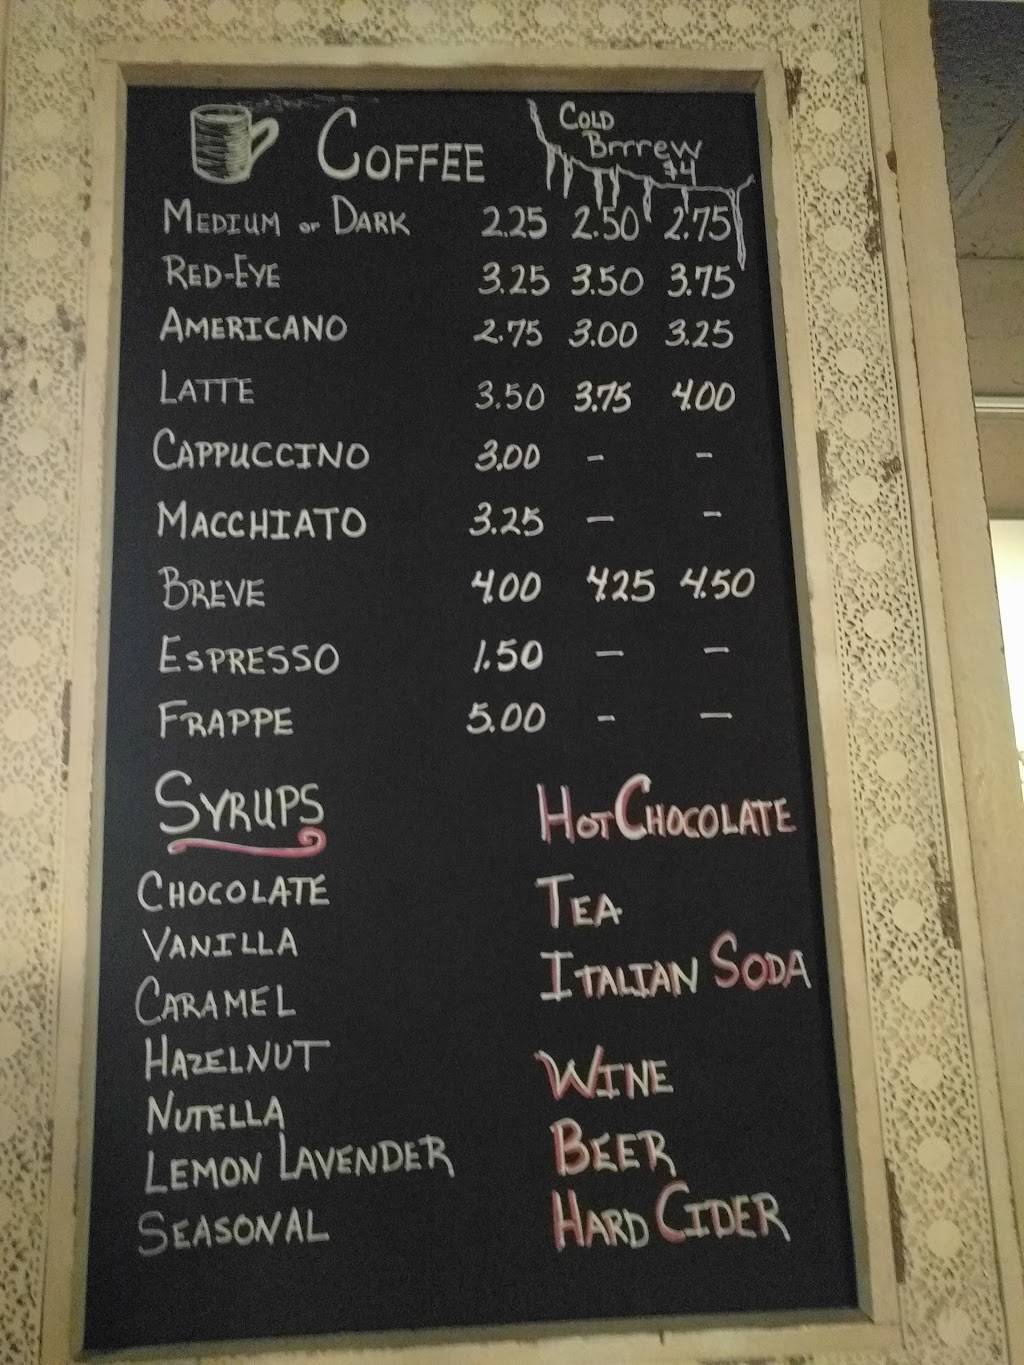 COFFEE
COLD
Brrrew
$4
MEDIUM or DARK 2.25 2.50 2.75
RED-EYE 3.25 3.50 3.75
AMERICANO 2.75 3.00 3.25
LATTE 3.50 3.75 4.00
CAPPUCCINO 3.00 - -
MACCHIATO 3.25 - -
BREVE 4.00 4.25 4.50
ESPRESSO 1.50 - -
FRAPPE 5.00 - -
SYRUPS
CHOCOLATE
VANILLA
CARAMEL
HAZELNUT
NUTELLA
LEMON LAVENDER
SEASONAL
HOT CHOCOLATE
TEA
ITALIAN SODA
WINE
BEER
HARD CIDER